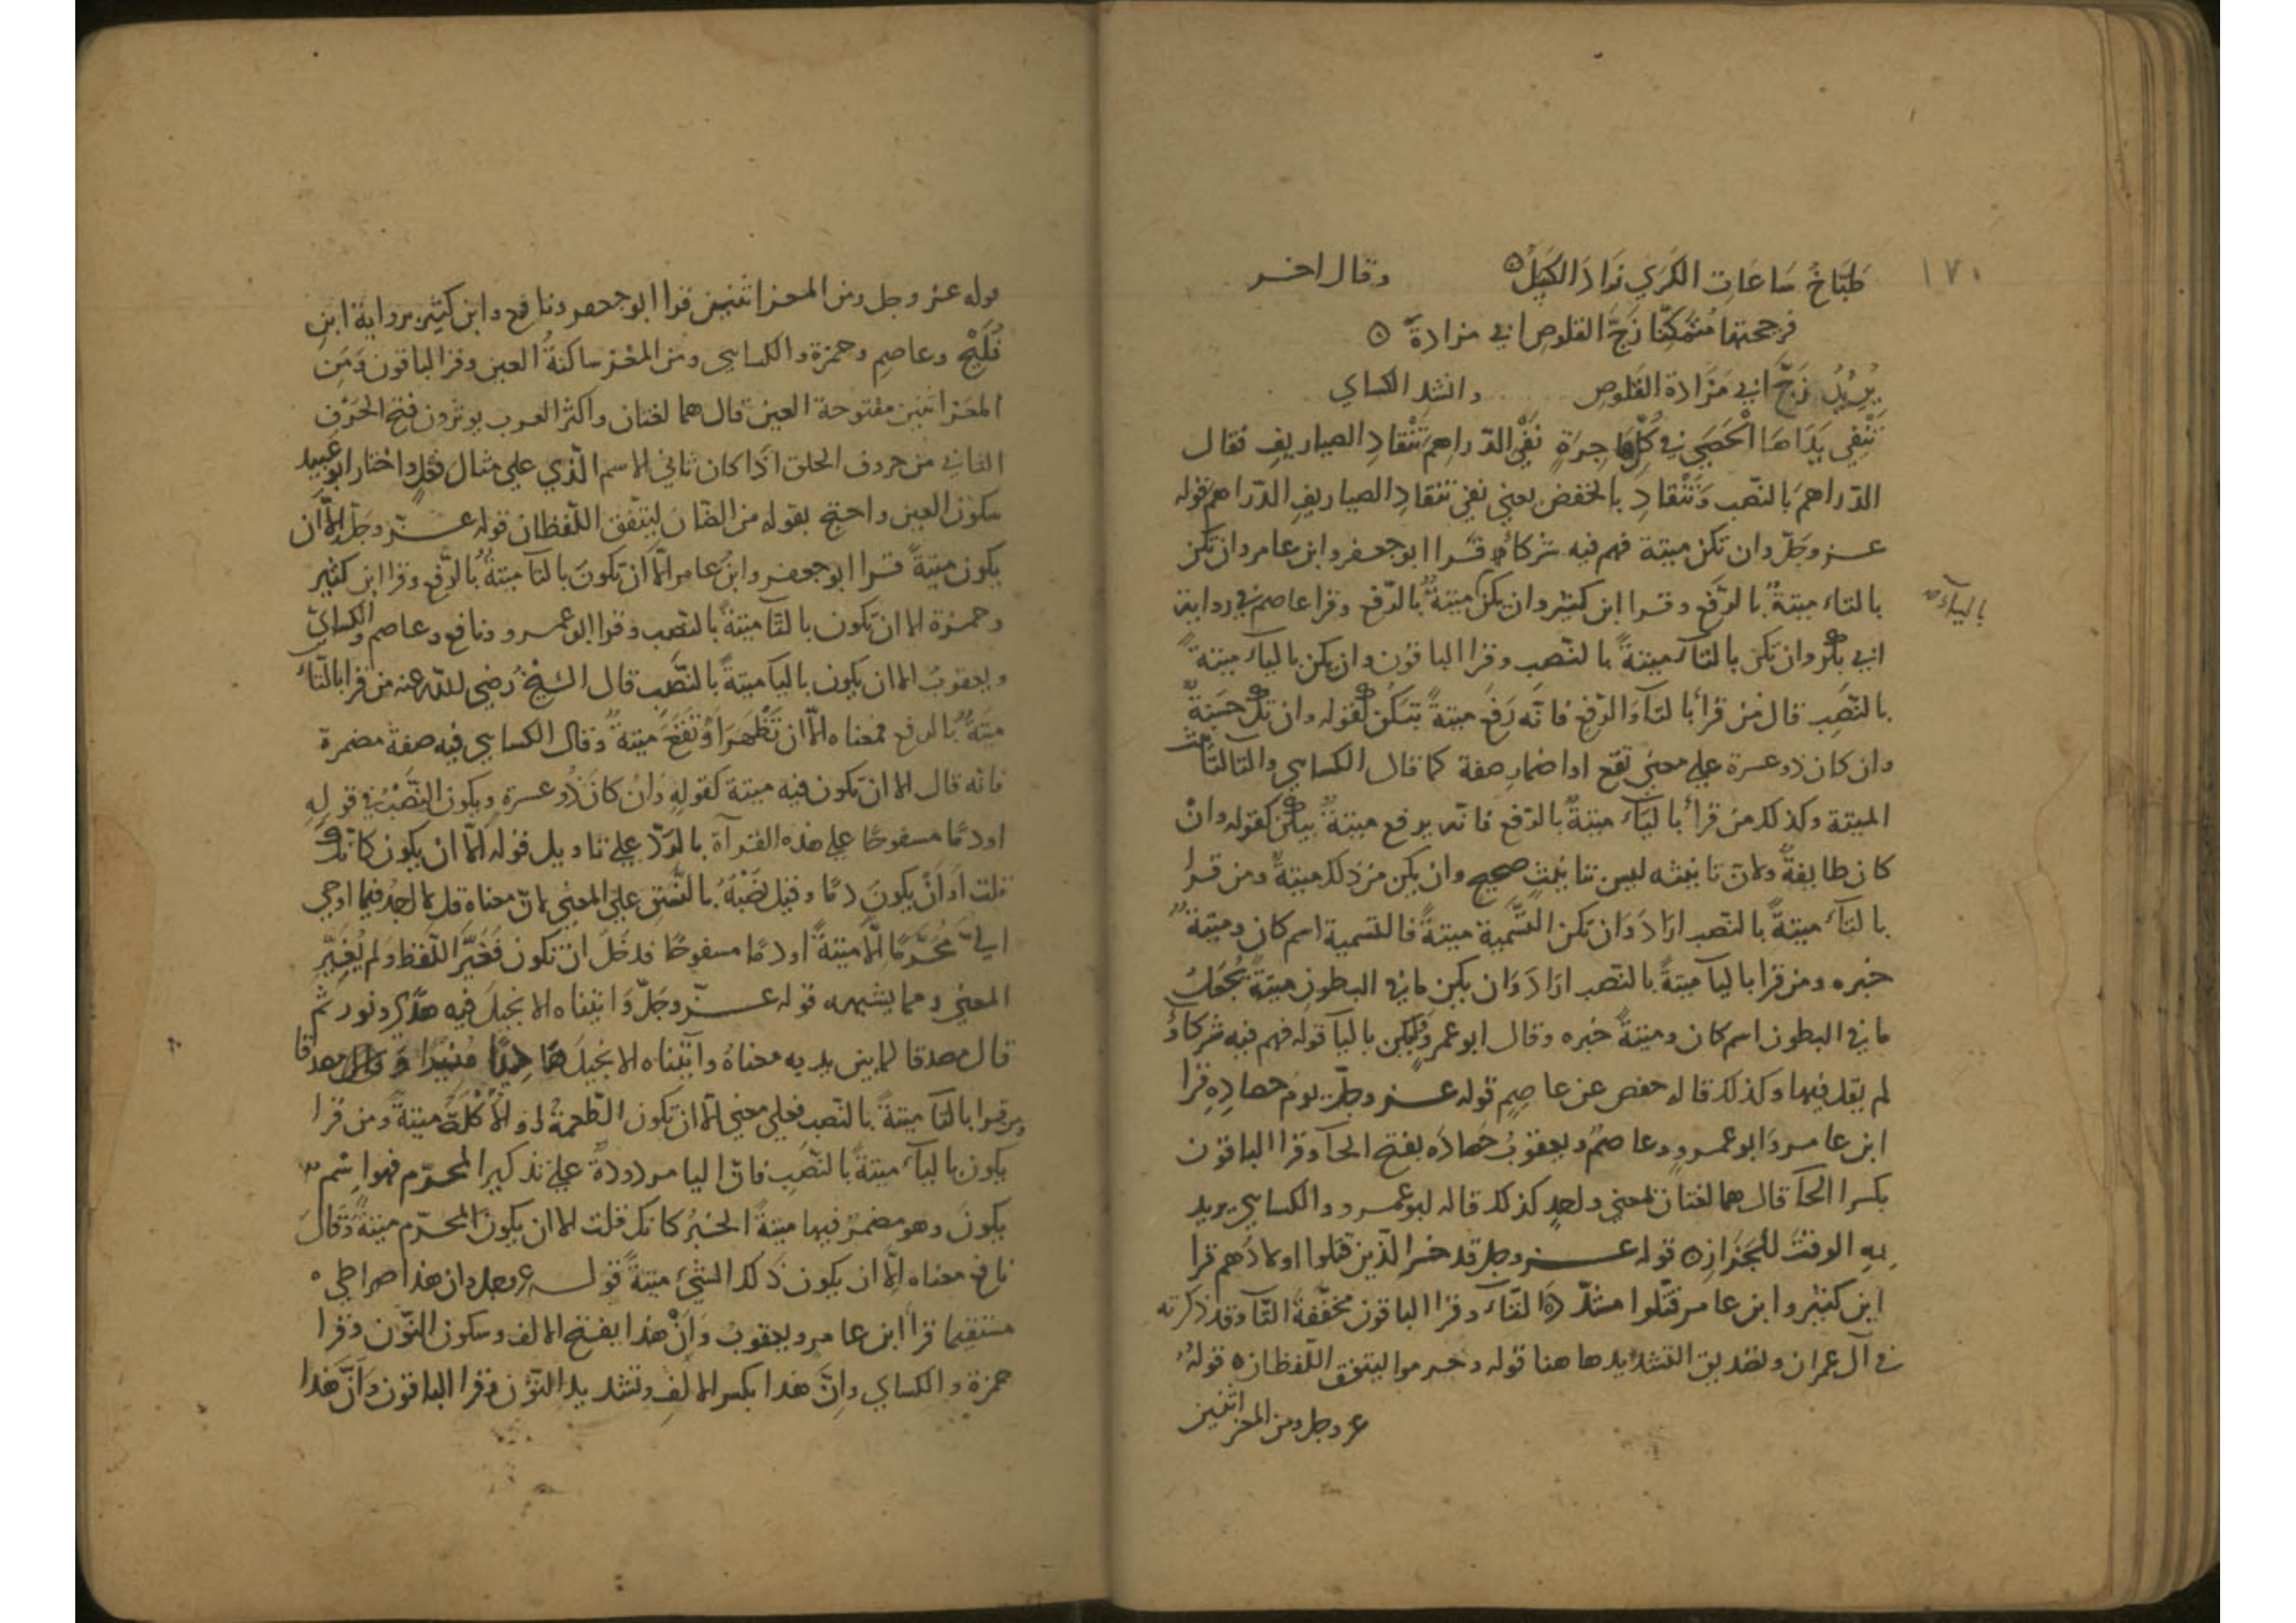 ١٧٠
طَبَّاخُ سَاعَاتِ الكَرَي زَادَ الكَسِلْ وقال اخر
فزججتها متمكنا زَجَّ القلوصَ ابي مزادة
يُرِيْدُ زَجَّ ابي مَزَادة القَلوص وانشد الكساي
تَنْفِي يَدَاهَا الْحَصَي في كُلِّ هَاجِرَةٍ نَفْيَ الدّراهمَ تَنْقادِ الصياريف فقال
الدّراهمَ بالنصب وَتَنْقادِ بالخفض يعني نفي تنقادِ الصياريف الدّراهمَ قوله
عز وجَلّ وان تكن ميتة فهم فيه شركاء قرا ابوجعفر وابن عامر وان تكن
بالتاء ميتةٌ بالرّفع وقرا ابن كثير وان يكن ميتةٌ بالرّفع وقرا عاصم في رواية
بالياء
ابي بكر وان تكن بالتآء ميتةً بالنصب وقرا الباقون وان يكن بالياء ميتةً
بالنصب قال من قرأ بالتآ والرّفع فانه رَفَع ميتةً بتكن لقوله وان تك حَسَنةٌ
وان كان ذو عسرة علي معني تقع او اضمار صفة كما قال الكسايي والتا لتانيث
الميتة وكذلك من قرأ بالياء ميتةٌ بالرّفع فانه يرفع ميتةٌ بيكن كقوله وانْ
كان طايفةٌ ولان تانيثه ليس تانيثٍ صحيح وان يكن من ذلك ميتةٌ ومن قرا
بالتآء ميتةً بالنصب ارَادَ وَان تكن التَّسْمية ميتةً فالتسمية اسم كان وميتةً
خبره ومن قرا باليا ميتةً بالنصب ارَادَ وَان يكن ما في البطون ميتةً يُجْعَلُ
ما في البطون اسم كان وميتةً خبره وقال ابوعمرو يكن باليا قوله فهم فيه شركاءُ
لم يقل فيها وكذلك قاله حفص عن عاصِم قوله عز وجلّ يوم حصادِهِ قرا
ابن عامر وَابوعمرو وعاصمٌ ويعقوبُ حَصَادَه بفتح الحآ وقرا الباقون
بكسر الحآ قال هما لغتان لمعني واحدٍ كذلك قاله ابوعمرو والكسايي يريد
بِه الوقتَ للجَزازِ قوله عز وجل قد خسر الّذين قتلوا اولادَهم قرا
ابن كثير وابن عامر قتّلوا مشدّدَةَ التّآء وقرا الباقون مخفّفةَ التّآ وقد ذكرته
في آل عمران وتصديق التشديد ها هنا قوله وحرموا ليتفق اللّفظان قولهُ
عز وجل ومن المعز اثنين
قوله عز وجل ومن المعز اثنين قرا ابوجعفر ونافع وابن كثير برواية ابن
فُلَيْحٍ وعاصِم وحمزة والكسايي ومن المَعْزِ ساكنةَ العين وقرا الباقون وَمِنَ
المعَز اثنين مفتوحة العين قال هما لغتان واكثر العرب يوثرون فتح الحَرْف
الثاني من حروف الحلق اذا كان ثاني الاسم الّذي علي مثال فَعْلٍ واختار ابو عبيد
سكون العين واحتج بقوله من الضّان ليتّفق اللّفظان قوله عزّ وجَلّ الّا اَن
يكون ميتةً قرا ابوجعفر وابنُ عامر الّا اَن تكونَ بالتآ ميتةٌ بالرّفع وقرا ابن كثير
وحمزة الا ان تكون بالتّا ميتةً بالنّصب وقرا ابو عمرو ونافع وعاصم والكسايي
ويعقوبُ الا ان يكون باليا ميتةً بالنَّصَب قال الشيخُ رَضِي اللّه عنه من قرا بالتّاءِ
ميتَةٌ بالرفع فمعناه الّا ان تَظْهرَ اَوْ تَقَعَ ميتةٌ وقال الكسايي فيه صفة مضمرة
فانه قال الا ان تكون فيه ميتة كقولِه وَانْ كانَ ذُو عسرةٍ ويكون النّصْبُ في قولِه
اودمًا مسفوحًا علي هذه القرآة بالرّدّ علي تاويل قوله الّا ان يكون كانّكَ
قلت اَوَ اَنْ يكونَ دمًا وقيل نَصْبُهُ بالنَّسَق علي المعني لانّ معناه قل لا اجد فيما اوحي
اليّ مُحَرَّمًا الّا ميتةً اودمًا مسفوحًا فدخَل ان تكون فَغَيَّرَ اللّفظ ولم يُغَيِّرِ
المعني ومما يشبهه قوله عزّ وجَلّ وَاتيناه الانجيلَ فيه هدًي ونور ثم
قال مصدقا لما بين يديه معناهُ واتيناه الانجيلَ
ومن قرا بالتا ميتةً بالنّصب فعلي معني الّا ان تكون الطّعمةُ او الاُكْلَةُ ميتةً ومن قرا
يكون بالياء ميتةً بالنّصب فانّ اليا مردودةٌ علي تذكير المحرّم فهو اسْم
يكونَ وهو مضمرٌ فيها ميتةً الخبرُ كانك قلت الا ان يكونَ المحرّم ميتةً وَقَالَ
نافع معناه اِلّا ان يكون ذَلك الشيءُ ميتةً قوله عز وجل وان هذا صراطي
مستقيما قرأ ابن عامر ويعقوبُ وَاَنْ هذا بفتح الالف وسكون النّون وقرا
حمزة والكساي وانَّ هذا بكسر الالِفِ وتشديد النّوْن وقرا الباقون وَاَنَّ هَذا